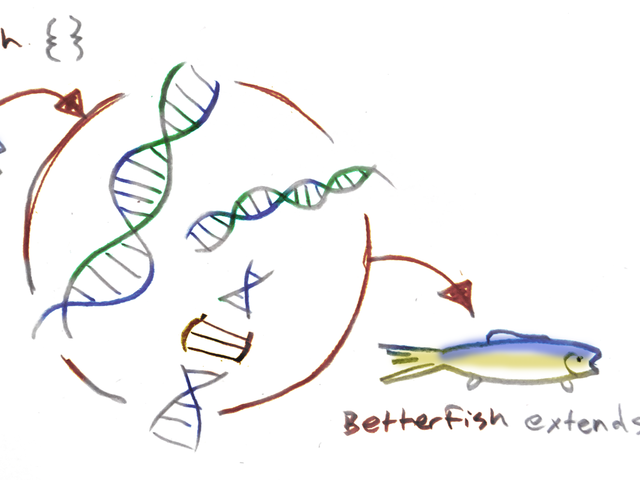 h {}
BetterFish extends